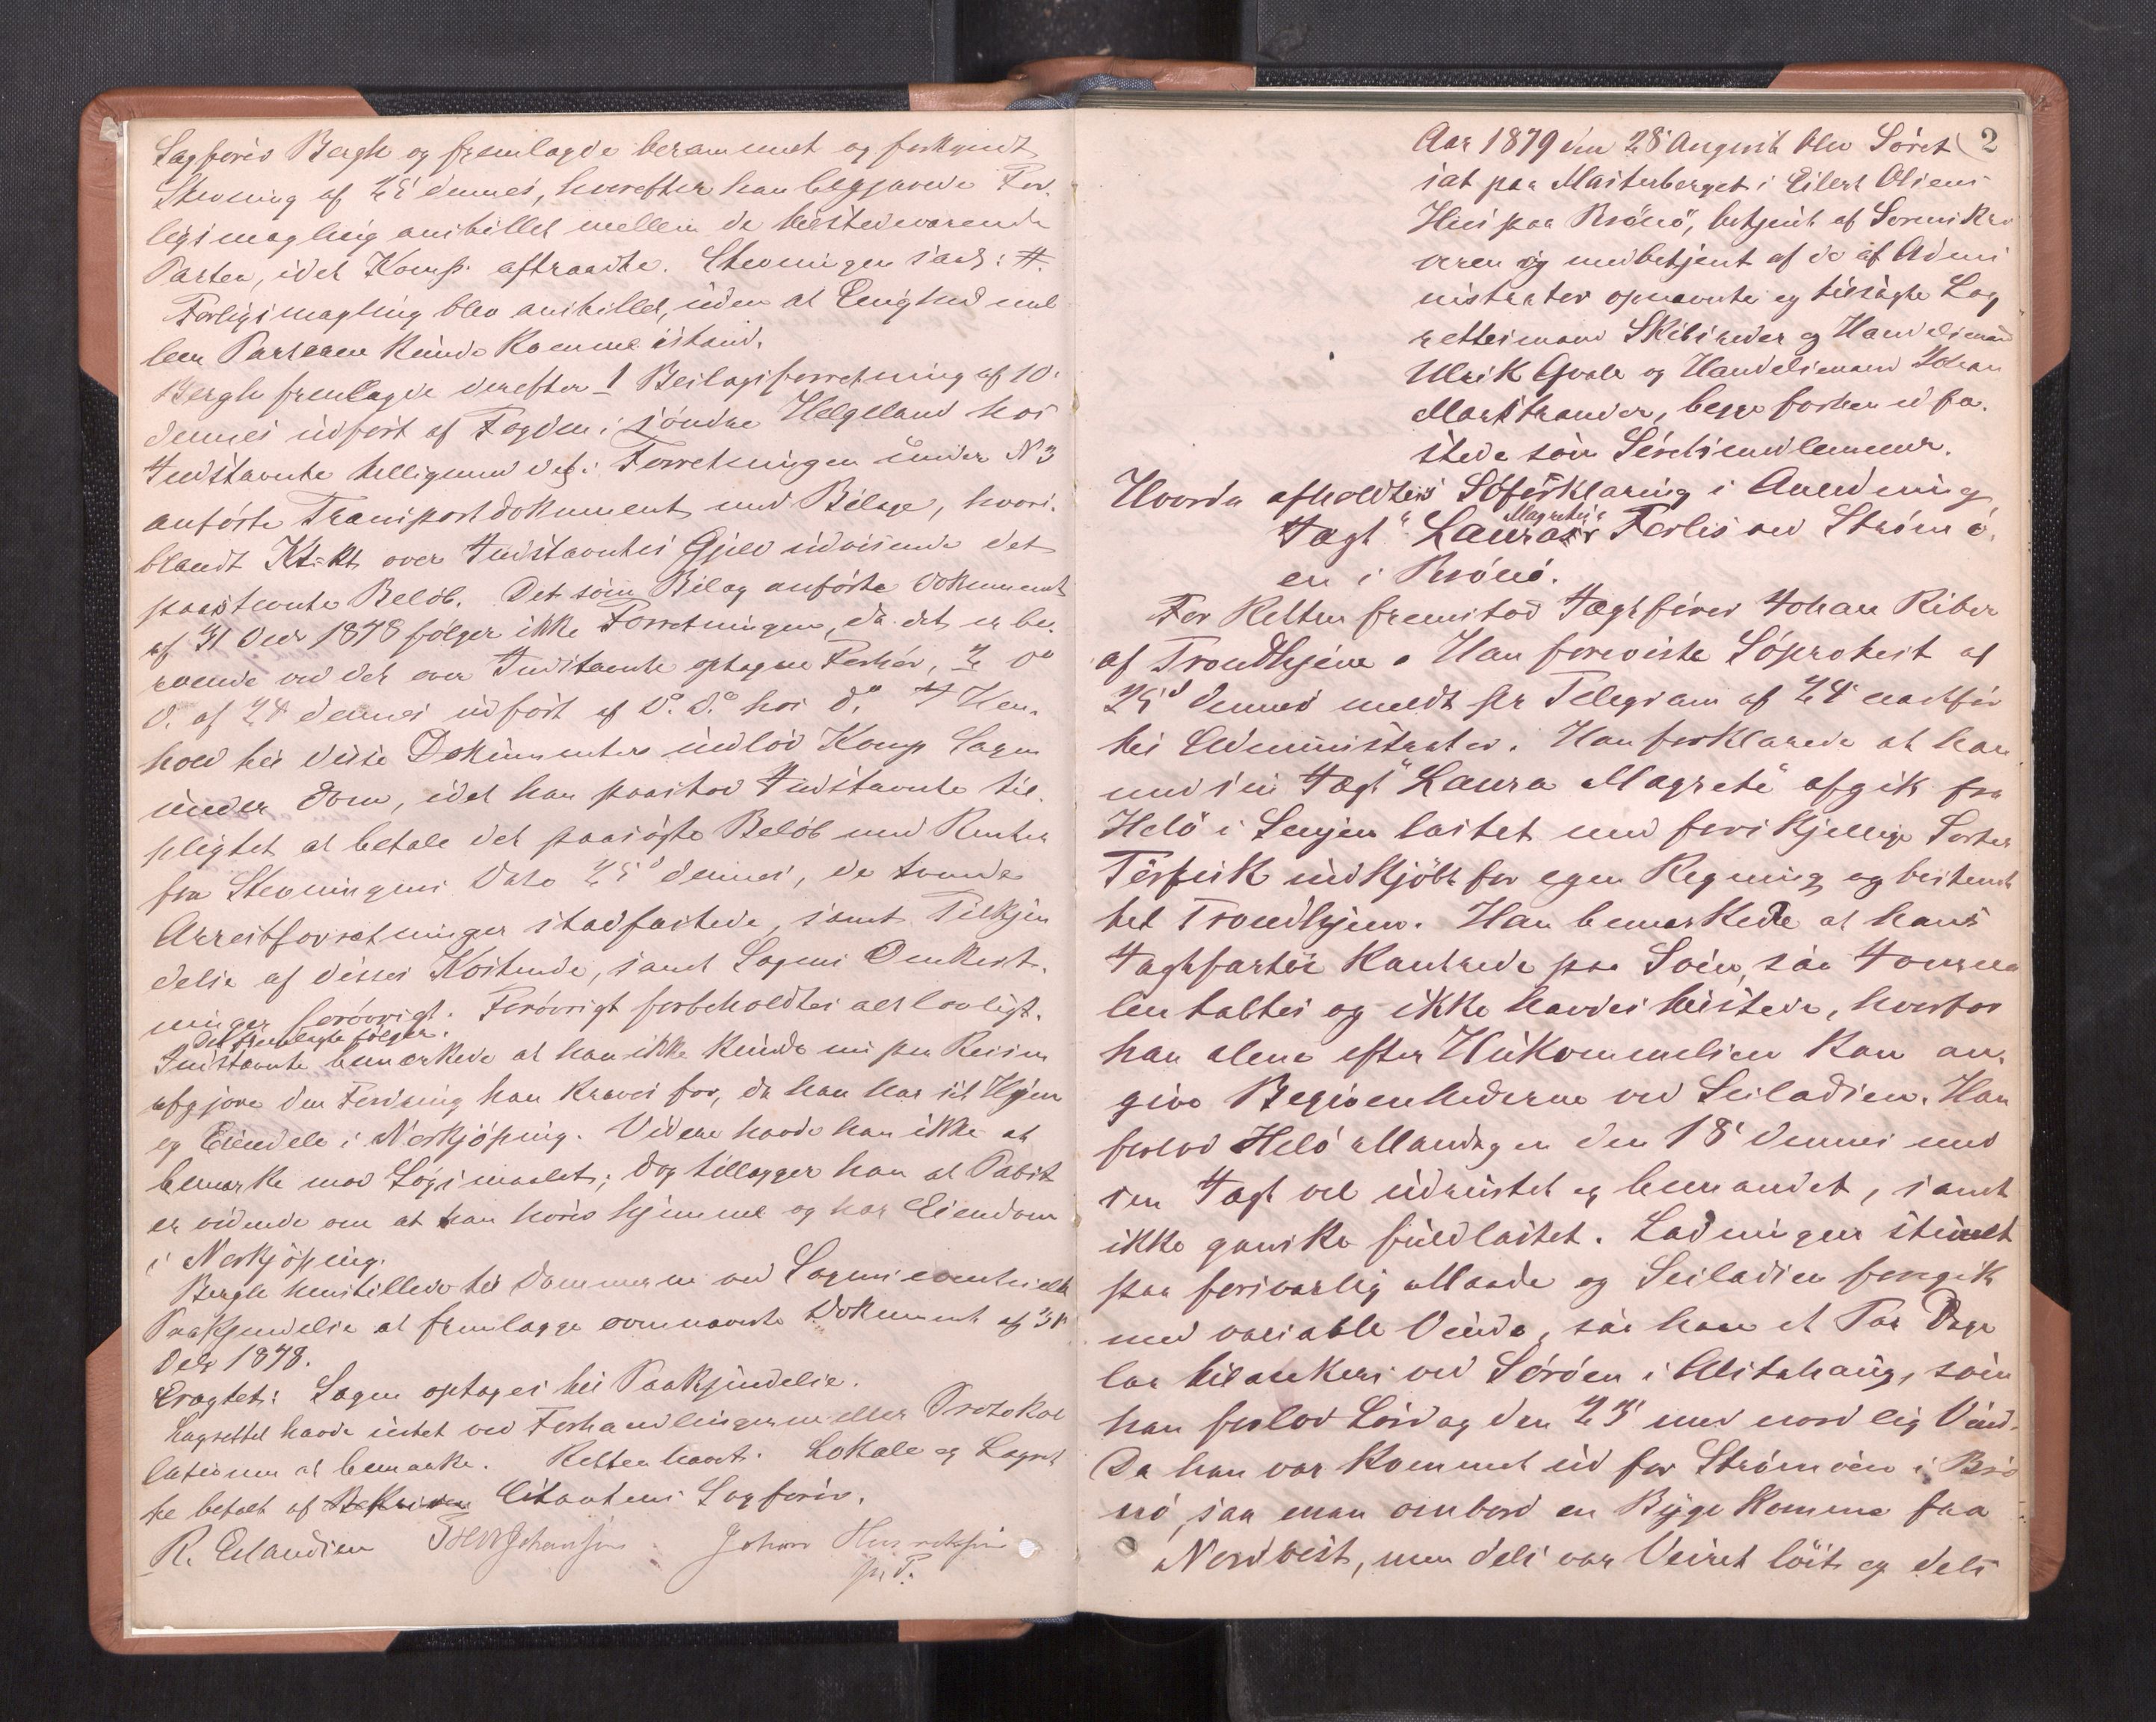 Sagfører Bergh og fremlagde berammet og forkyndt
Stevning af 25 dennes, hvorefter han begjærede For-
ligsmægling anstillet mellem de tilstedeværende
Parter, idet Komp. aftraadte. Stevningen saal: #.
Forligsmægling blev anstillet, uden at Enighed mel
lem Parterne kunde komme istand.
Bergh fremlagde derefter 1 Beslagsforretning af 10.
dennes udført af Fogden i søndre Helgeland hos
Indstævnte tilligemed det i Forretningen under N 3
anførte Transportdokument med Bilage, hvori-
blandt over Indstævntes Gjæld udvisende det
paastevnte Beløb. Det som Bilag anførte Dokument
af 31 Decr 1878 følger ikke Forretningen, da det er be-
roende ved det over Indstævnte optagne Forhør, 2 do
D. af 24 dennes udført af Do. do hos do. I Hen-
hold til disse Dokumenter indlod Komp Sagen
under Dom, idet han paastod Indstævnte til-
pligtet at betale det paasøgte Beløb med Renter
fra Stevningens Dato 25 dennes, de tvende
Arrestforretninger stadfæstede, samt Tilkjen
delse af disses Kostende, samt Sagens Omkost-
ninger forøvrigt. Forøvrigt forbeholdtes alt lovligt.
Det fremlagte følger.
Indstævnte bemærkede at han ikke kunde nu paa Reisen
afgjøre den Fordring han kræves for, da han har sit Hjem
og Eiendele i Norkjøping. Videre havde han ikke at
bemærke mod Søgsmaalet; dog tillægger han at Pabst
er vidende om at han hører hjemme og har Eiendom
i Norkjøping.
Bergh henstillede til Dommeren ved Sagens eventuelle
Paakjendelse at fremlægge ovennævnte Dokument af 31
Decr 1878.
Eragtet: Sagen optages til Paakjendelse.
Lagrettet havde intet ved Forhandlingerne eller Protokol
lationen at bemærke. Retten hævet. Lokale og Lagret
te betalt af Citantens Sagfører.
R. Erlandsen Johan Henriksen
m. P.
2
Aar 1879 den 28 August blev Søret
sat paa Masterberget i Eilert Olsens
Hus paa Brønø, betjent af Sorenskri
veren og medbetjent af de af Admi
nistrator opnævnte og tilsagte Lag
rettesmænd Skibsreder og Handelsmand
Ulrik Qvale og Handelsmand Johan
Markstrander, begge forhen edfæ-
stede som Søretsmedlemmer.
Hvorda afholdtes Søforklaring i Anledning
Magretes
Jagt "Lauras Forlis ved Strømø-
en i Brønø.
For Retten fremstod Jagtfører Johan Riber
af Trondhjem. Han foreviste Søprotest af
25 dennes meldt per Telegram af 24 næstfør
til Administrator. Han forklarede at han
med sin Jagt "Laura Magrete" afgik fra
Helø i Senjen lastet med forskjellige Sorter
Tørfisk indkjøbt for egen Regning og bestemt
til Trondhjem. Han bemærkede at hans
Jagtfartøi kantrede paa Søen, saa Journa
len tabtes og ikke havdes tilstede, hvorfor
han alene efter Hukommelsen kan an-
give Begivenhederne ved Seiladsen. Han
forlod Helø Mandagen den 18 dennes med
sin Jagt vel udrustet og bemandet, samt
ikke ganske fuldlastet. Ladningen stuvet
paa forsvarlig Maade og Seiladsen foregik
med variable Vinde, saa han et Par Dage
laa tilankers ved Sørøen i Alstahaug, som
han forlod Lørdag den 23 med nordlig Vind.
Da han var kommet ud for Strømøen i Brø
nø, saa man ombord en Byge komme fra
Nordvest, men dels var Veiret løit og dels